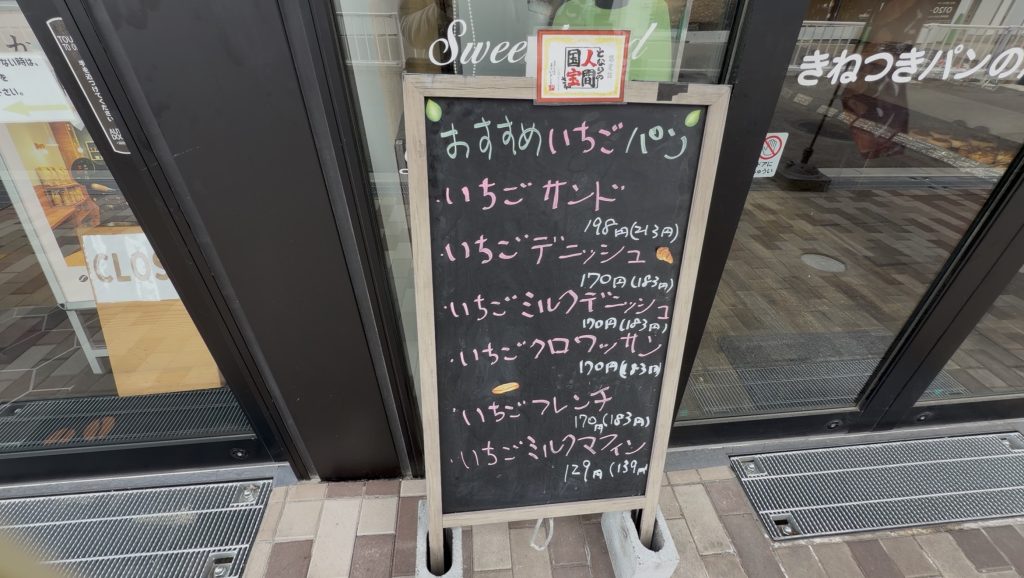 Sweet
人間
国宝
きねつきパンの
おすすめいちごパン
・いちごサンド
198円(213円)
・いちごデニッシュ
170円(183円)
・いちごミルクデニッシュ
170円(183円)
・いちごクロワッサン
170円(183円
・いちごフレンチ
170円(183円)
・いちごミルクマフィン
129円(139円
ない時は、
を
さい。
CLOS